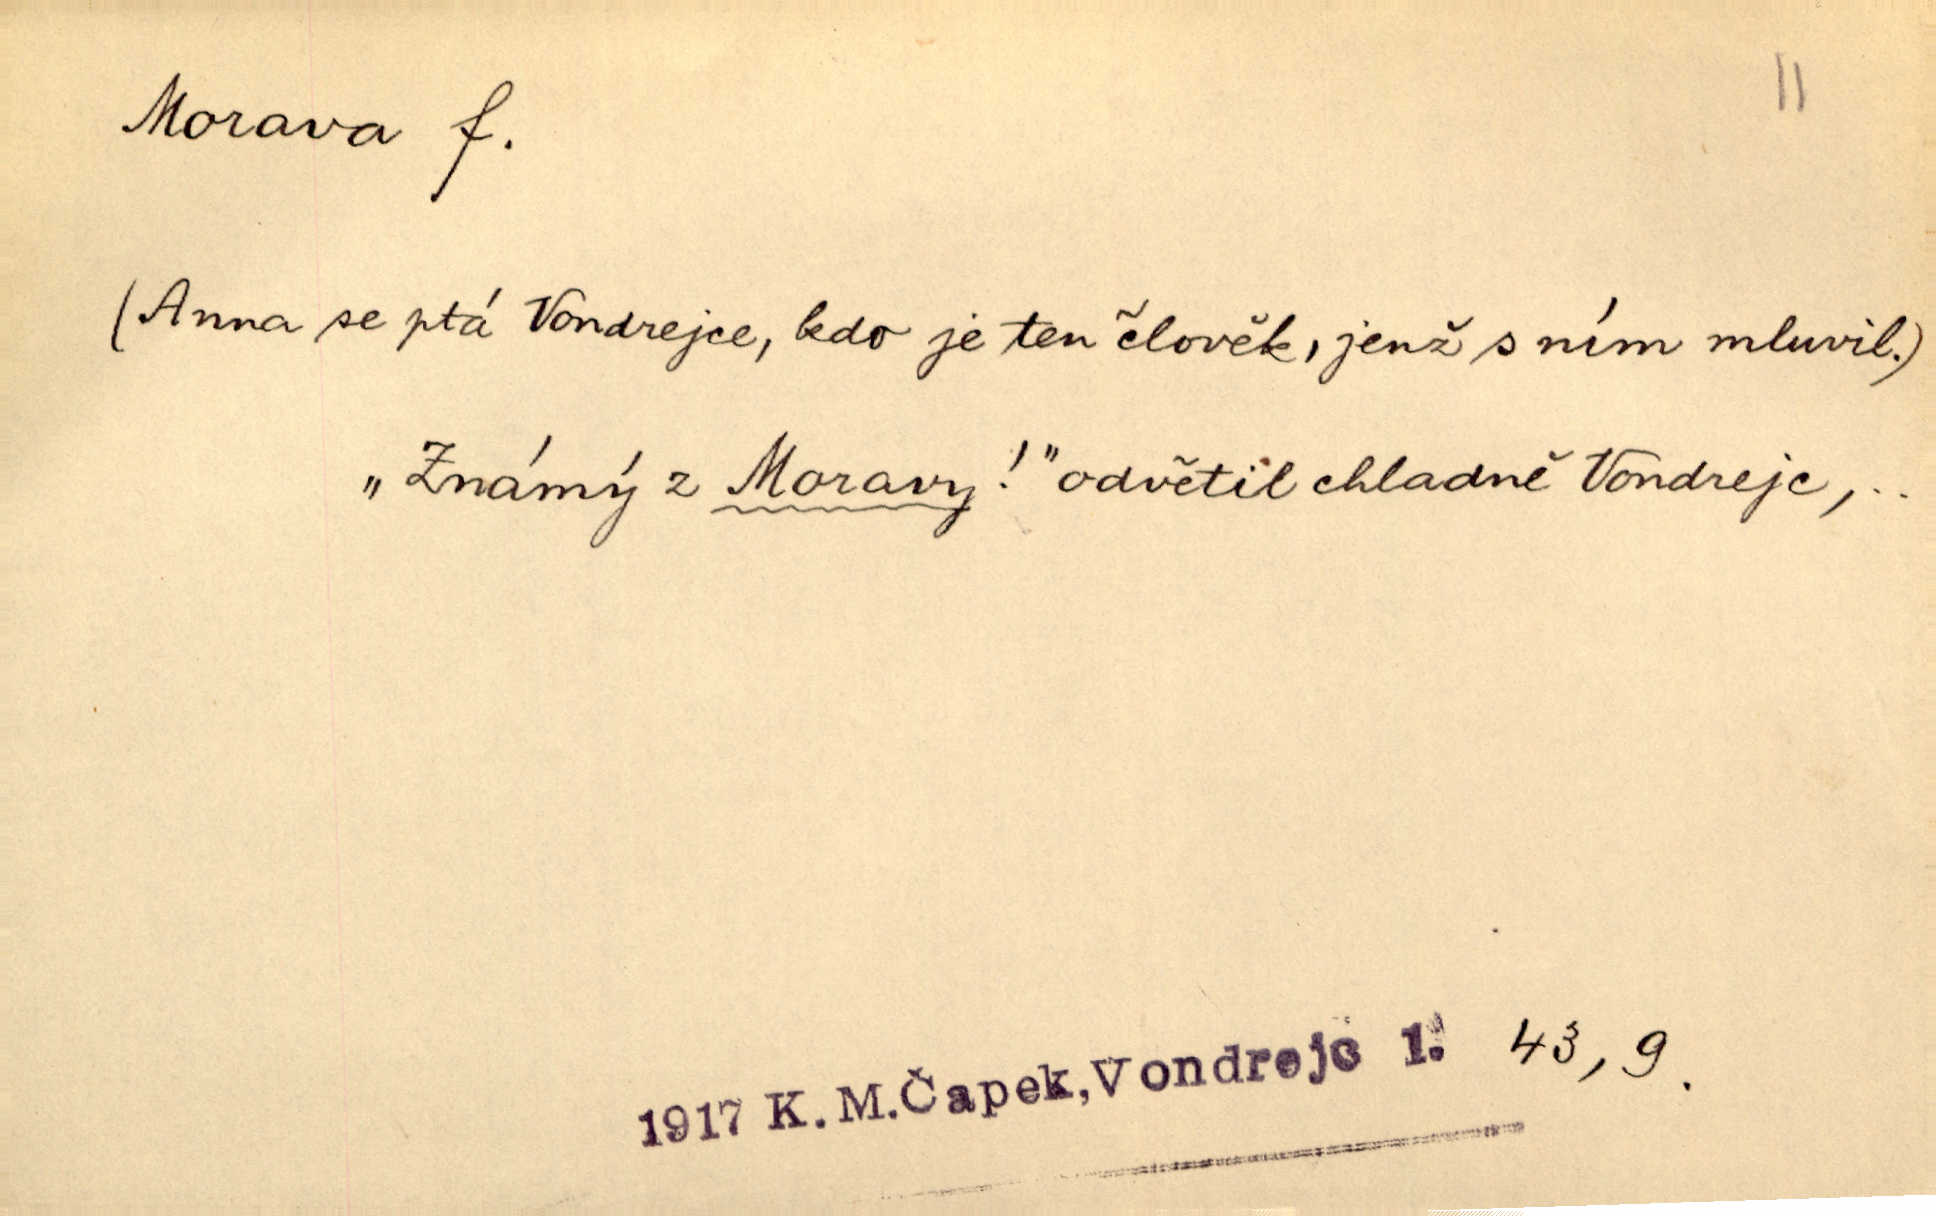 Morava f.
11
(Anna se ptá Vondrejce, kdo je ten člověk, jenž s ním mluvil.)
„Známý z Moravy!" odvětil chladně Vondrejc, ..
1917 K. M. Čapek, Vondrejc 1. 43, 9.